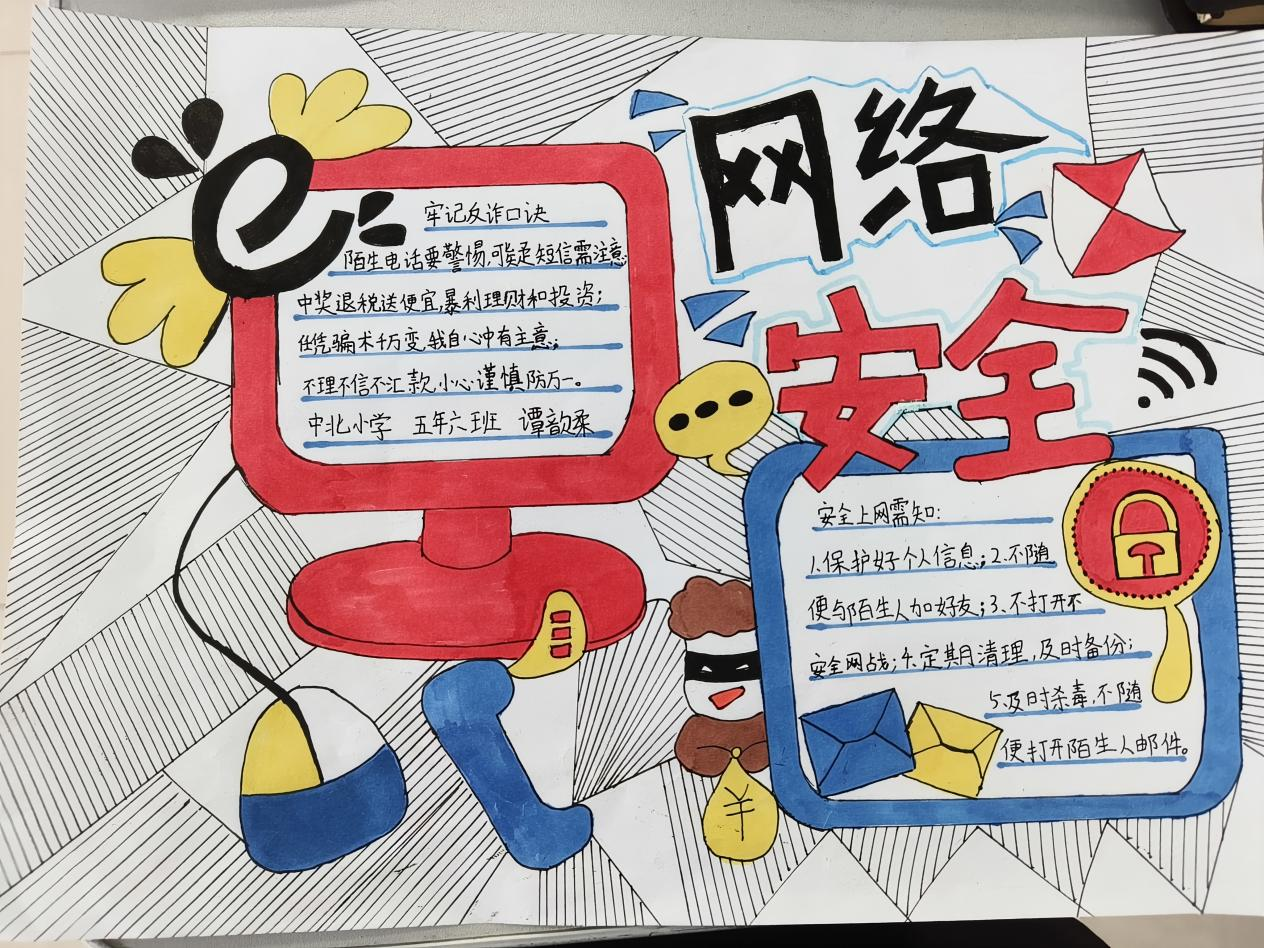 网络
安全
牢记反诈口诀
陌生电话要警惕,可疑短信需注意
中奖退税送便宜,暴利理财和投资;
任凭骗术千万变,我自心中有主意;
不理不信不汇款,小心谨慎防万一。
中北小学 五年六班 谭韵柔
安全上网需知:
1.保护好个人信息;2.不随
便与陌生人加好友;3、不打开不
安全网战;4.定期清理,及时备份;
5.及时杀毒,不随
便打开陌生人邮件。
¥